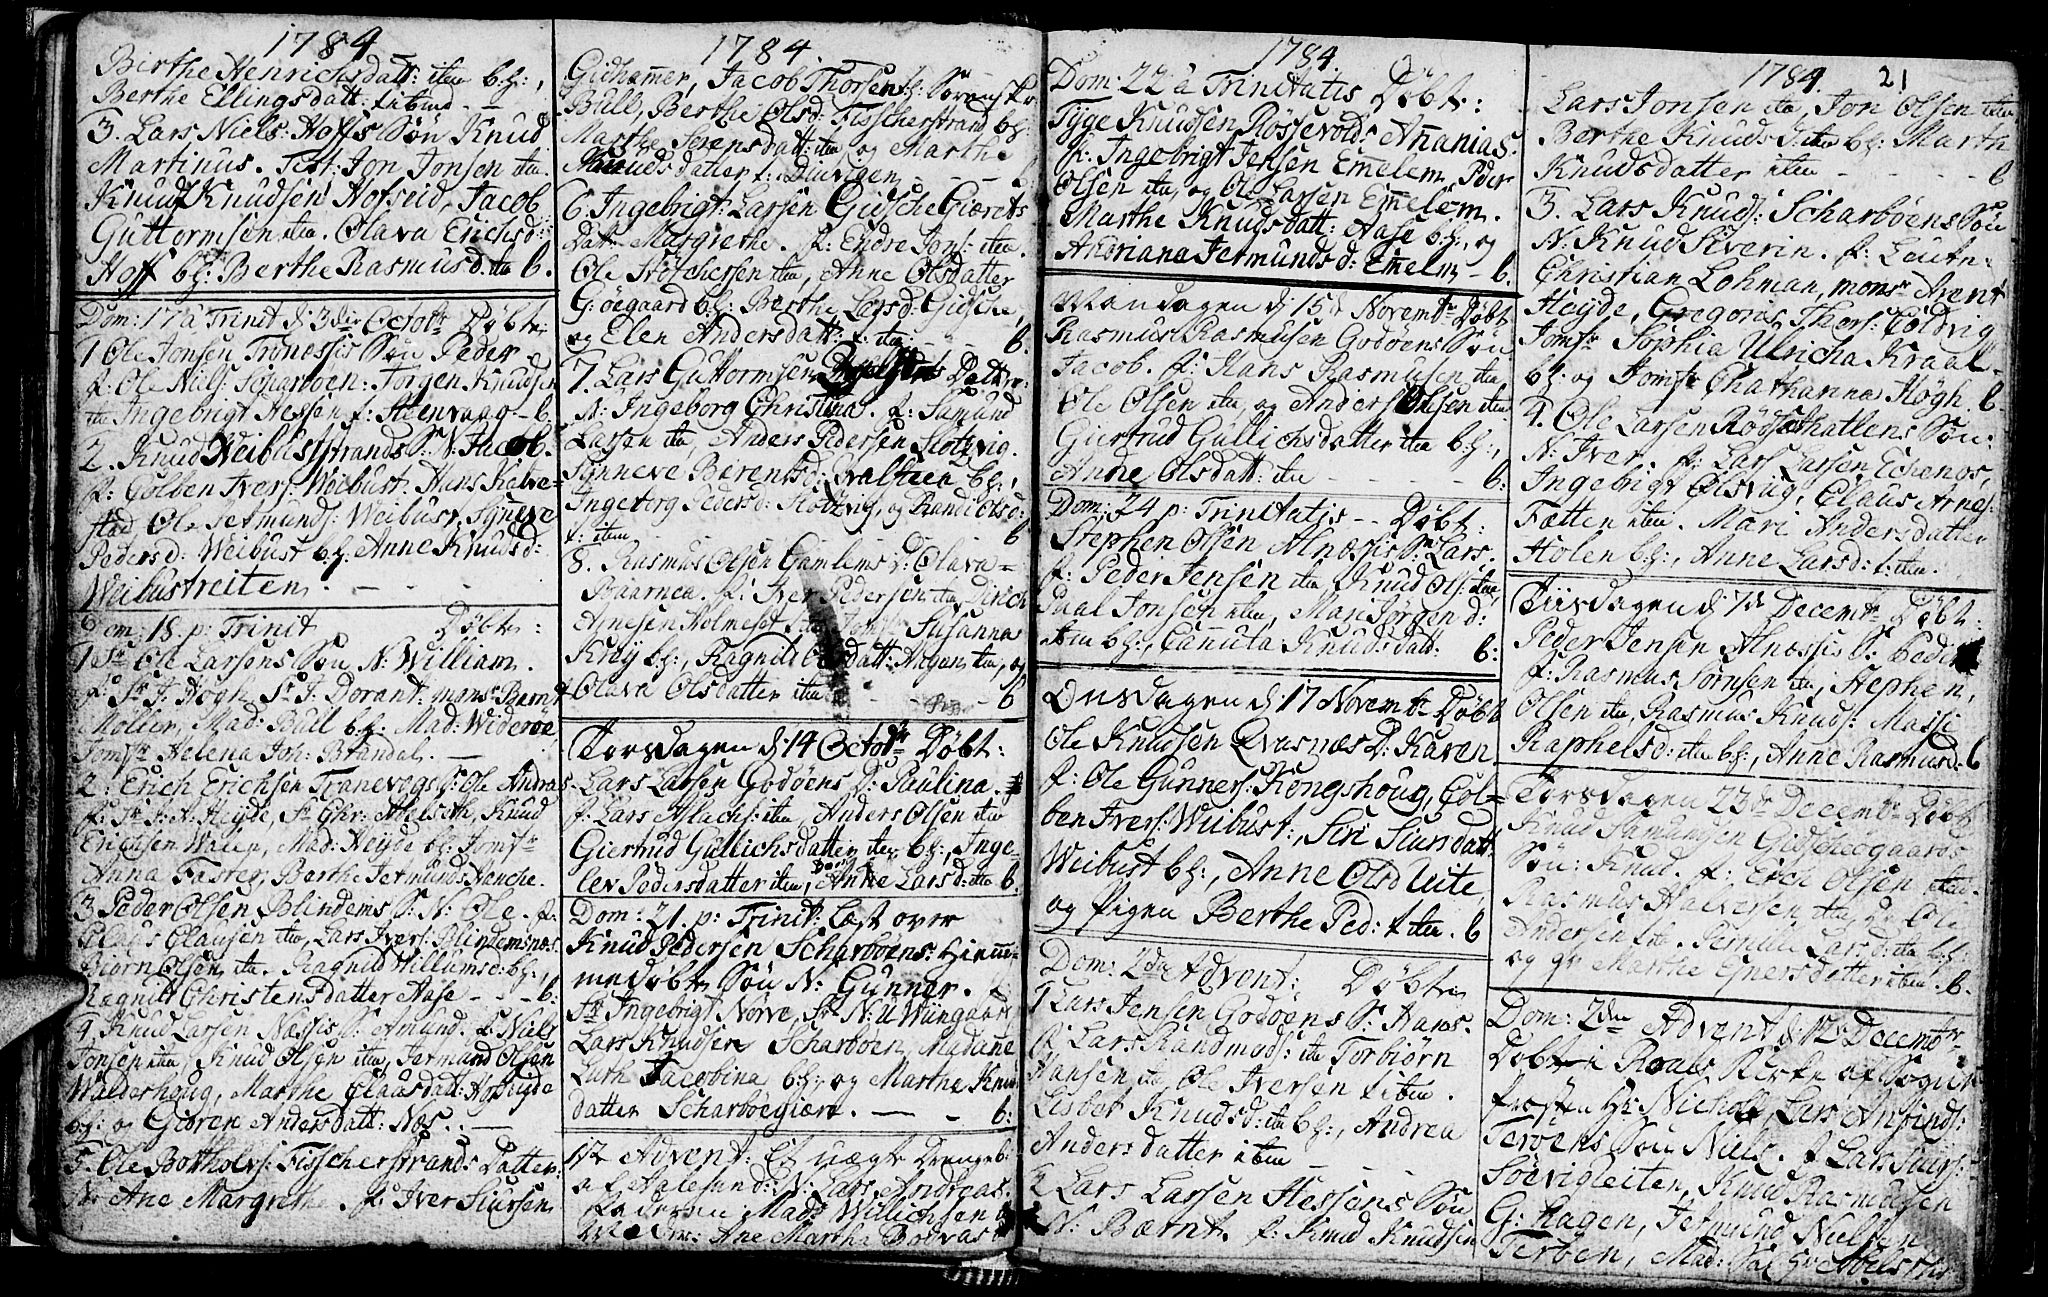 1784
Birthe Henrichsdatt: iten b:f:,
Berthe Ellingsdatt: ibend - -
3. Lars Niels: Hoffs Søn Knud
Martinus. Test: Jon Jonsen iten
Knud Knudsen Hofseid, Jacob
Guttormsen iten. Olava Erichsd:
Hoff b:f: Berthe Rasmusd. iten b.
Dom: 17 à Trinit d: 3die Octobr Døbt:
1 Ole Jonsen Trinæssis Søn Peder
f: Ole Niels: Scharboen: Jørgen Knudsen
iten Ingebrigt Hessen f: Steenvaag - b
2. Knud Weibustrands S: N: Jacob.
f: Colben Ivers: Weibust: Hans Kalve-
stad Ole Jetmunds: Weibust, Syneve
Pedersd: Weibust b:f: Anne Knudsd:
Weibustreiten. - - -
Dom: 18. p: Trinit Døbt:
1 Sr Ole Larsens Søn N: William.
f: Sr J: Høgh Sr J. Dorant: monsr Bernt
Moller, Mad: Bull b:f: Mad: Wideroe,
Jomfr Helena Joh: Brandal. -
2. Erich Erichsen Tranevogs S: Ole Andreas
f: Sr J: A: Heyde, Sr Chr: Abelseth, Knud
Erichsen Walen, Mad: Heyde b:f: Jomfr
Anna Faster, Berthe Jetmunds Hanche.
3 Peder Olsen Blindems S: N: Ole. f:
Claus Clausen iten, Lars Ivers: Blindemsnæs
Biørn Olsen iten. Ragnild Willumsd: b:f:,
Ragnilt Christensdatter Aase - - b:
4 Knud Larsen Næssis S: Amund. f: Niels
Jonsen iten, Knud Olsen iten, Jetmund Olsen
Walderhoug, Marthe Clausdatt: Hofseyde
b:f: og Gioren Andersdatt: Næs. -
5. Ole Botholvs: Fisscherstrands Datter:
N: Ane Margrethe. f: Iver Siursen
1784.
Gidhamer, Jacob Thorsen
Bull, Berthe Olsd: Fisscherstrand b:f:
Marthe Sorensdatt: iten og Marthe
Knudsdatter f: Duevigen - - - b
6. Ingebrigt: Larsen Gidsche Giærets
Datt: Margrethe. f: Endre Jons: iten.
Ole Størchersen iten, Anne Olsdatter
G: øegaard b:f: Berthe Larsd: Gidsche,
og Elen Andersdatt: f: iten. - - b.
7. Lars Guttormsen Datter:
N: Ingeborg Christina. f: Samund
Larsen iten, Anders Pedersen Slotzvig.
Synneve Berentsd: Qvalsteen b:f:,
Ingeborg Pedersd: Slotzvig, og Randi Olsd:
f: item - - - b
8. Rasmus Olsen Gamlems D: Olava
Biaarnea. f: Iver Pedersen iten Dirich
Arnesen Holmeset Susanna
Krey b:f:, Ragnilt Olsdatt: Hagen iten, og
Olava Olsdatter iten - - - b
Torsdagen d: 14 Octobr Døbt:
Lars Larsen Godøens D: Paulina.
f: Lars Alachs: iten, Anders Olsen iten
Giertrud Gullichsdatter iten b:f:, Inge-
lev Pedersdatter iten, Anne Larsd: iten b
Dom: 21. p: Trinit: Læst over
Knud Pedersen Scharboens: Hieme-
medøbt Søn N: Gunner.
Sr Ingebrigt Nørve, Sr N: U Wungaard
Lars Knudsen Scharboen, Madame
Luth Jacobina b:f: og Marthe Knuds
datter Scharbøegiæn. - - b:
1ste Advent: Et uægte Drengeb:
af Aalesund: N: Lars Andreas.
Pedersen Mad: Willichsen
Ane Marthe Bodvas
1784.
Dom: 22 à Trinitatis Døbt:
Tyge Knudsen Røssevold: Ananias.
f: Ingebrigt Jensen Emelem Peder
Olsen iten, og Ole Larsen Emelem.
Marthe Knudsdatt: Aase b:f:, og
Andriana Jetmundsd: Emelem - b.
Mandagen d: 15de Novembr Døbt
Rasmus Rasmusen Godøens Søn
Jacob. f: Hans Rasmusen iten
Ole Olsen iten og Anders Olsen iten
Giertrud Gullichsdatter iten b:f:,
Anne Olsdatt: iten - - - - b:
Dom: 24 p: Trinitatis - - Døbt:
Stephen Olsen Alnæssis S: Lars.
f: Peder Jensen iten Knud Ols: iten,
Paal Jonsen iten, Mari Jørgend:
iten b:f:, Canuta Knudsdatt: b:
Onsdagen d: 17 Novembr Døbt
Ole Knudsen Qvasnæs D: Karen
f: Ole Gunners: Kongshoug, Col-
ben Ivers: Weibust:, Siri Siursdatt:
Weibust b:f:, Anne Olsd Leite,
og Pigen Berthe Ped: f iten. b
Dom: 2den Advent: Døbt
1 Lars Jensen Godøens S: Hans.
f: Lars Randmods: iten Torbiørn
Hansen iten, Ole Iversen ibm.
Lisbet Knudsd: iten b:f:, Andrea
Andersdatter ibm - - -
2 Lars Larsen Hessens Søn
N: Bærnt. f: Knud Knudsen
1784 21
Lars Jonsen iten, Jon Olsen iten
Berthe Knudsd: iten b:f: Marth
Knudsdatter iten - - - - b
3. Lars Knuds: Scharbøens Søn
N: Knud Siverin. f: Leutn:
Christian Lohman, monsr Arent
Heyde, Gregoris Thors: Coldvig
Jomfr Sophia Ulricha Kraal-
b:f: og Jomfr Chatharina Høgh. b.
4. Ole Larsen Rødsethatlens Søn:
N: Iver. f: Lars Larsen Echengs,
Ingebrigt Olsvug, Claus Arnes:
Fætten iten. Mari Andersdatter
Holen b:f:, Anne Larsd: f: iten.
Tiisdagen d: 7de Decembr Døbt:
Peder Jensen Alnæssis S: Peder
f: Rasmus Jonsen iten, Stephen
Olsen iten, Rasmus Knuds: Massi
Raphelsd: iten b:f:, Anne Rasmusd: b
Torsdagen 23de Decembr Døbt
Knud Samunsen Gidscheogaards
Søn: Knud. f: Erch Olsen iten
Rasmus Halversen iten, Ole
Andersen iten Pernille Larsd: iten b:f:
og gr Marthe Einersdatter iten. b.
Dom: 2den Advent d: 12 Decembr
Døbt i Roals Kirke af Sogne
præsten Hr: Nicholl, Lars Amunds:
Terøens Søn Niels. f Lars Siurs:
Søevigleiten, Knud Rasmusen
G: Hagen, Jetmund Nielsen
Terøen, Mad: